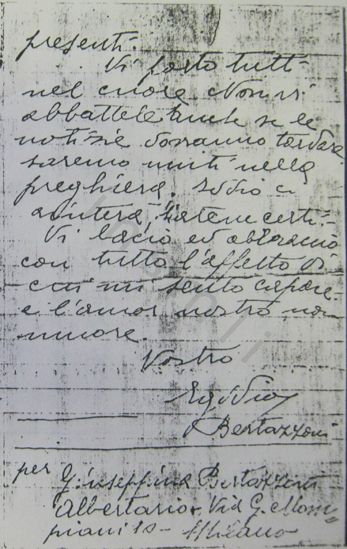 presenti.
Vi porto tutti
nel cuore. Non vi
abbattete anche se le
notizie dovranno tardare
saremo uniti nella
preghiera. Iddio ci
aiuterà, siatene certi.
Vi bacio ed abbraccio
con tutto l'affetto di
cui mi sento capace
e l'amor nostro non
muore.
Vostro
Egidio
Bertazzoni
per Giuseppina Bertazzoni
Albertario - Via G.
piani 10 - Milano